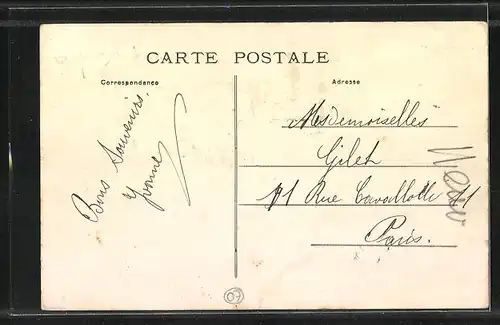 CARTE POSTALE
Correspondance
Adresse
Bons Souvenirs,
Yvonne
Mesdemoiselles
Gilet
11 Rue Cavallotti 11
Paris.